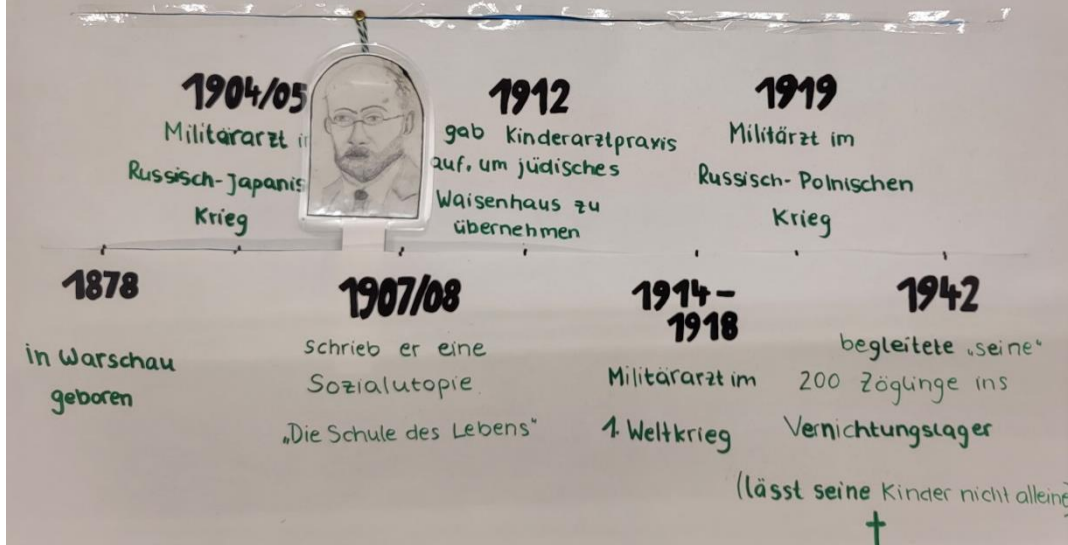 1904/05
Militärarzt i
Russisch-Japanis
Krieg
1912
gab Kinderarztpraxis
auf, um jüdisches
Waisenhaus zu
übernehmen
1919
Militärzt im
Russisch-Polnischen
Krieg
1878
in Warschau
geboren
1907/08
schrieb er eine
Sozialutopie.
„Die Schule des Lebens“
1914-
1918
Militärarzt im
1. Weltkrieg
1942
begleitete „seine“
200 Zöglinge ins
Vernichtungslager
(lässt seine Kinder nicht alleine)